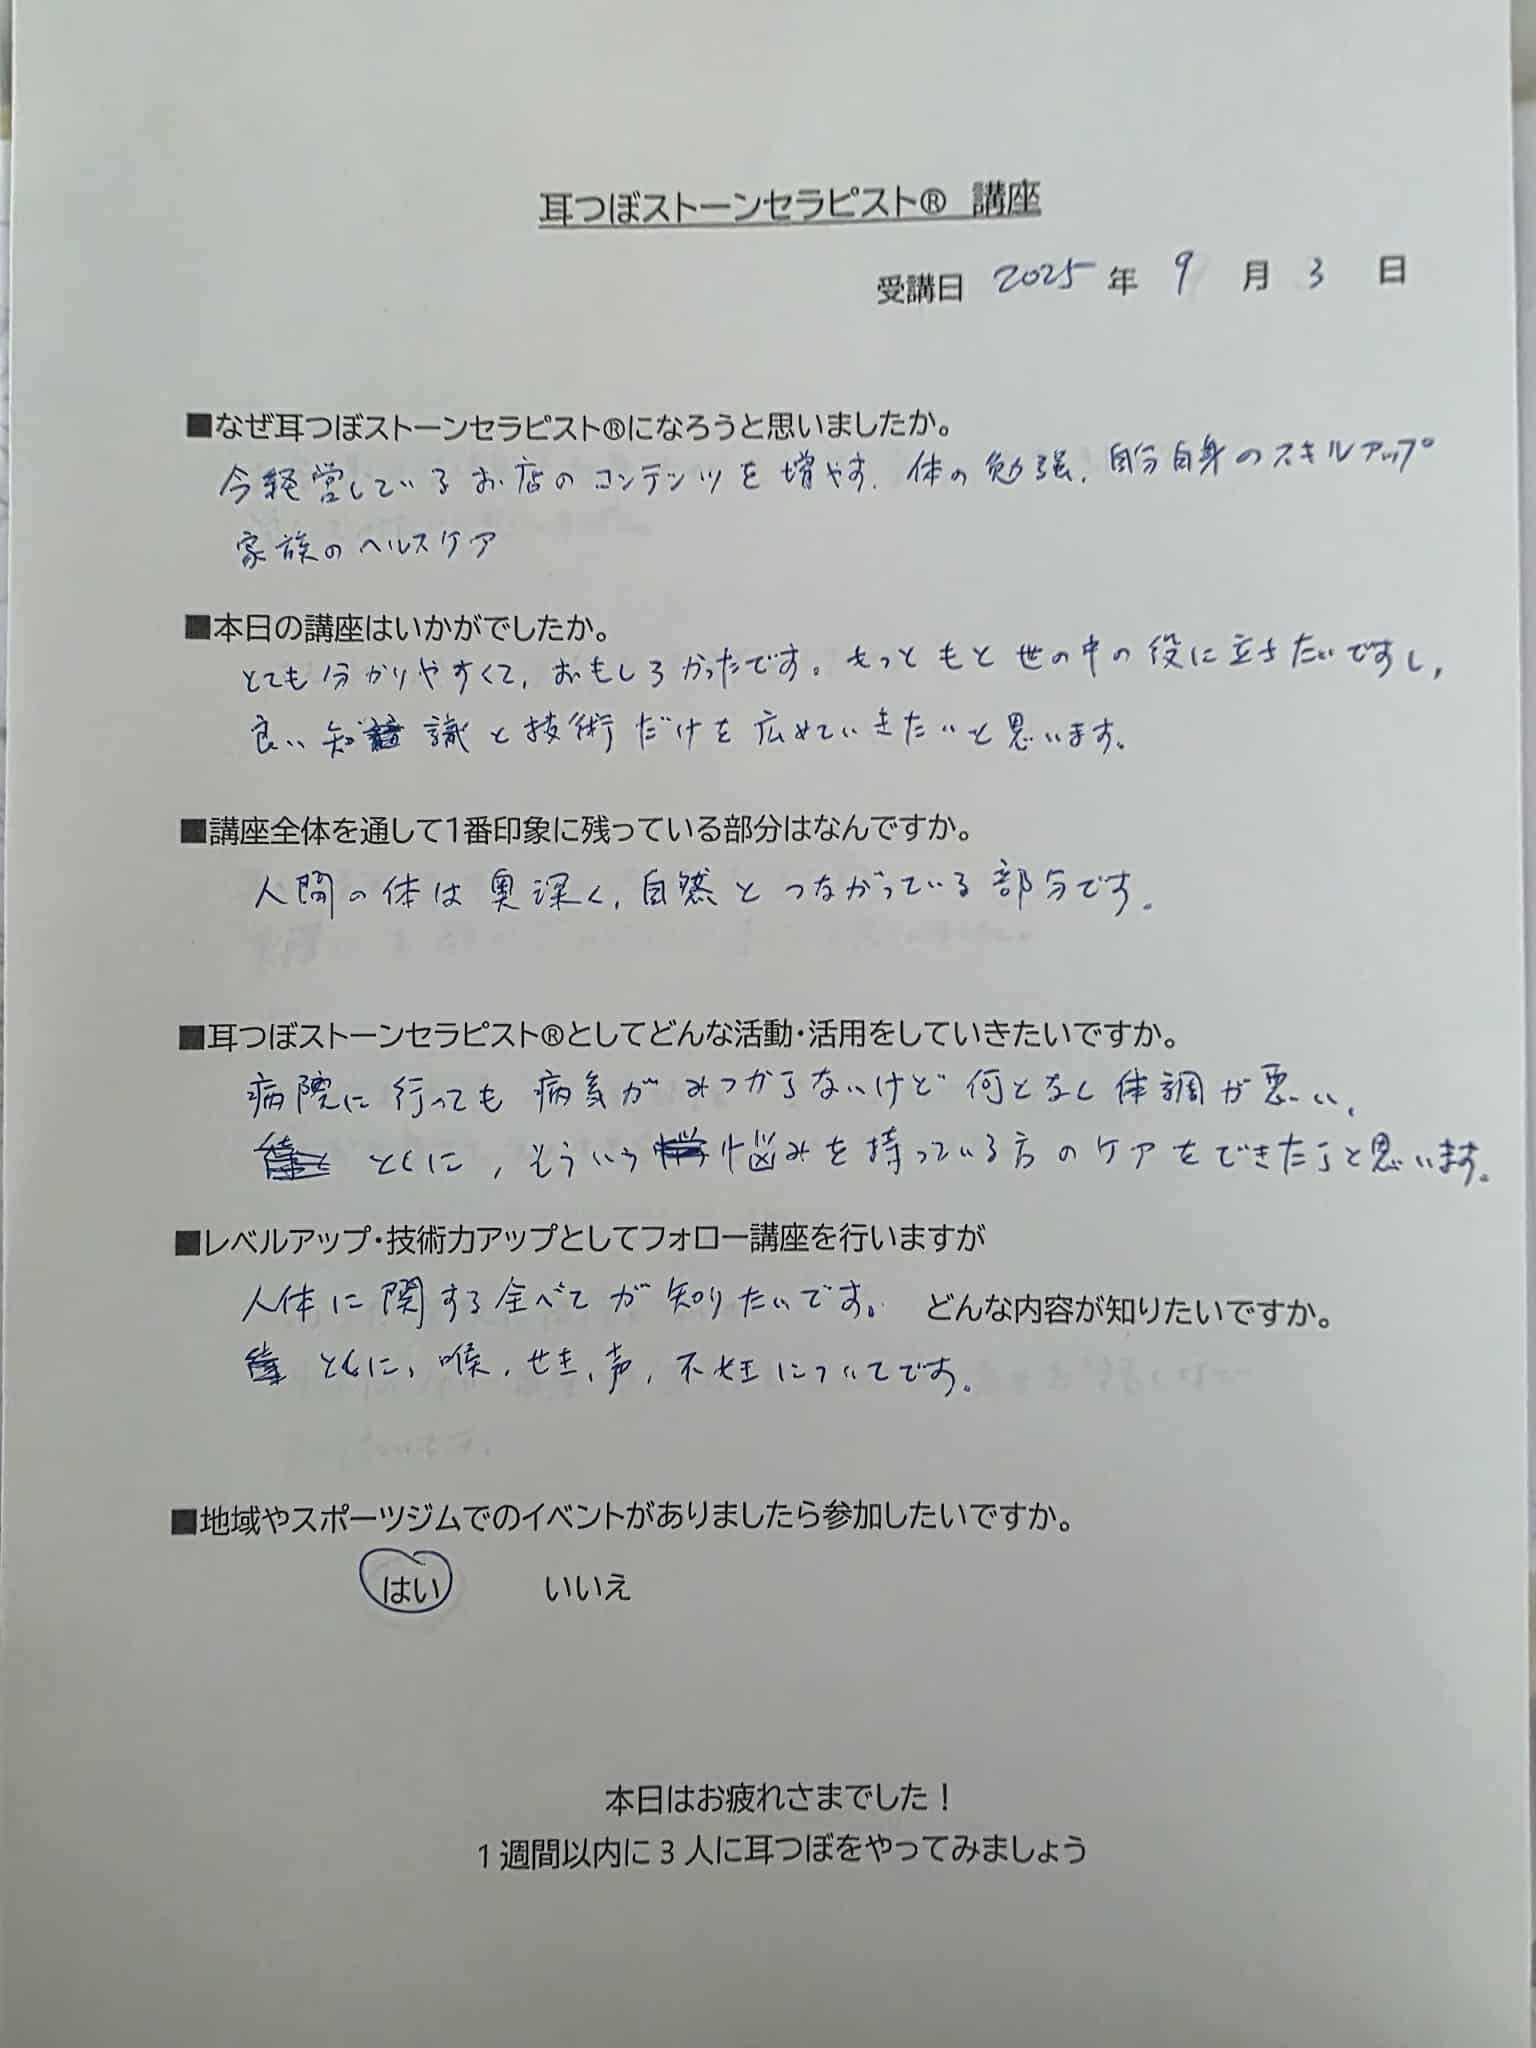 耳つぼストーンセラピスト® 講座
受講日 2025 年 9 月 3 日
■なぜ耳つぼストーンセラピスト®になろうと思いましたか。
今経営しているお店のコンテンツを増やす、体の勉強、自分自身のスキルアップ
家族のヘルスケア
■本日の講座はいかがでしたか。
とても分かりやすくて、おもしろかったです。もっともと世の中の役に立ちたいですし、
良い知識と技術だけを広めていきたいと思います。
■講座全体を通して1番印象に残っている部分はなんですか。
人間の体は奥深く、自然とつながっている部分です。
■耳つぼストーンセラピスト®としてどんな活動・活用をしていきたいですか。
病院に行っても病気がみつからないけど何となく体調が悪い、
とくに、そういう悩みを持っている方のケアをできたらと思います。
■レベルアップ・技術力アップとしてフォロー講座を行いますが
人体に関する全べてが知りたいです。 どんな内容が知りたいですか。
とくに、喉、せき、声、不妊についてです。
■地域やスポーツジムでのイベントがありましたら参加したいですか。
はい いいえ
本日はお疲れさまでした！
1週間以内に3人に耳つぼをやってみましょう